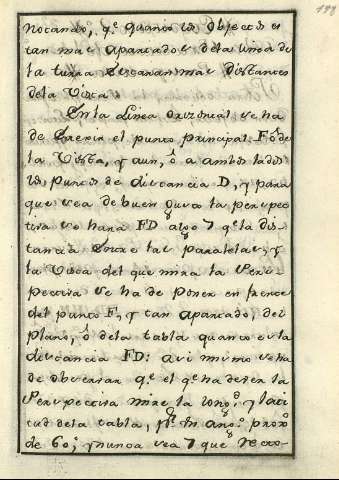 notando, q.e quanto los objectos es
tan mas apartados dela linea de
la tierra estaran mas distantes
dela Vista
En la Linea orizontal se ha
de el punto principal F ô de
la Vista, y aun, ô a ambos lados
los puntos de distancia D, y para
que sea de buen gusto la perspec
tiva se hara FD algo 7 q.e la dis-
tancia entre las paralelas, y
la Vista del que mira la Pers
pectiva se ha de poner en frente
del punto F, y tan apartado, del
plano, ô dela tabla quanto es la
distancia FD: asi mismo se ha
de observar q.e el q.e ha de ver la
Perspectiva mire la long.d y lati
tud dela tabla, p.r un ang.o prox.o
de 60; y nunca sea 7 que recto-